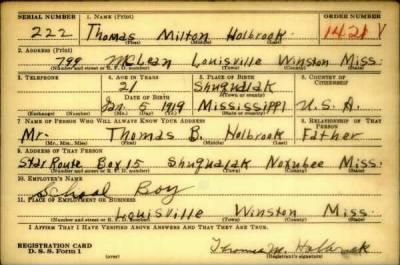 SERIAL NUMBER 1. NAME (Print) ORDER NUMBER
222 Thomas Milton Holbrook 1421 V
2. ADDRESS (Print)
799 McLean Louisville Winston Miss.
3. TELEPHONE 4. AGE IN YEARS 5. PLACE OF BIRTH 6. COUNTRY OF CITIZENSHIP
21 Shuqualak
DATE OF BIRTH (Town or county)
Jan. 5 1919 Mississippi U.S.A.
(Exchange) (Number) (Mo.) (Day) (Yr.) (State or country)
7. NAME OF PERSON WHO WILL ALWAYS KNOW YOUR ADDRESS 8. RELATIONSHIP OF THAT PERSON
Mr. Thomas B. Holbrook Father
(Mr., Mrs., Miss) (First) (Middle) (Last)
9. ADDRESS OF THAT PERSON
Star Route Box 15 Shuqualak Noxubee Miss.
(Number and street or R. F. D. number) (Town) (County) (State)
10. EMPLOYER'S NAME
School Boy
11. PLACE OF EMPLOYMENT OR BUSINESS
Louisville Winston Miss.
(Number and street or R. F. D. number) (Town) (County) (State)
I AFFIRM THAT I HAVE VERIFIED ABOVE ANSWERS AND THAT THEY ARE TRUE.
REGISTRATION CARD
D. S. S. Form 1 Thomas M. Holbrook
(over) (Registrant's signature)